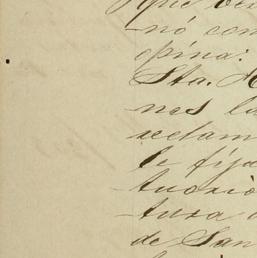 que
nó con
opina:
Sta. A
nes la
reclam
le fija
tuario
tura
de San